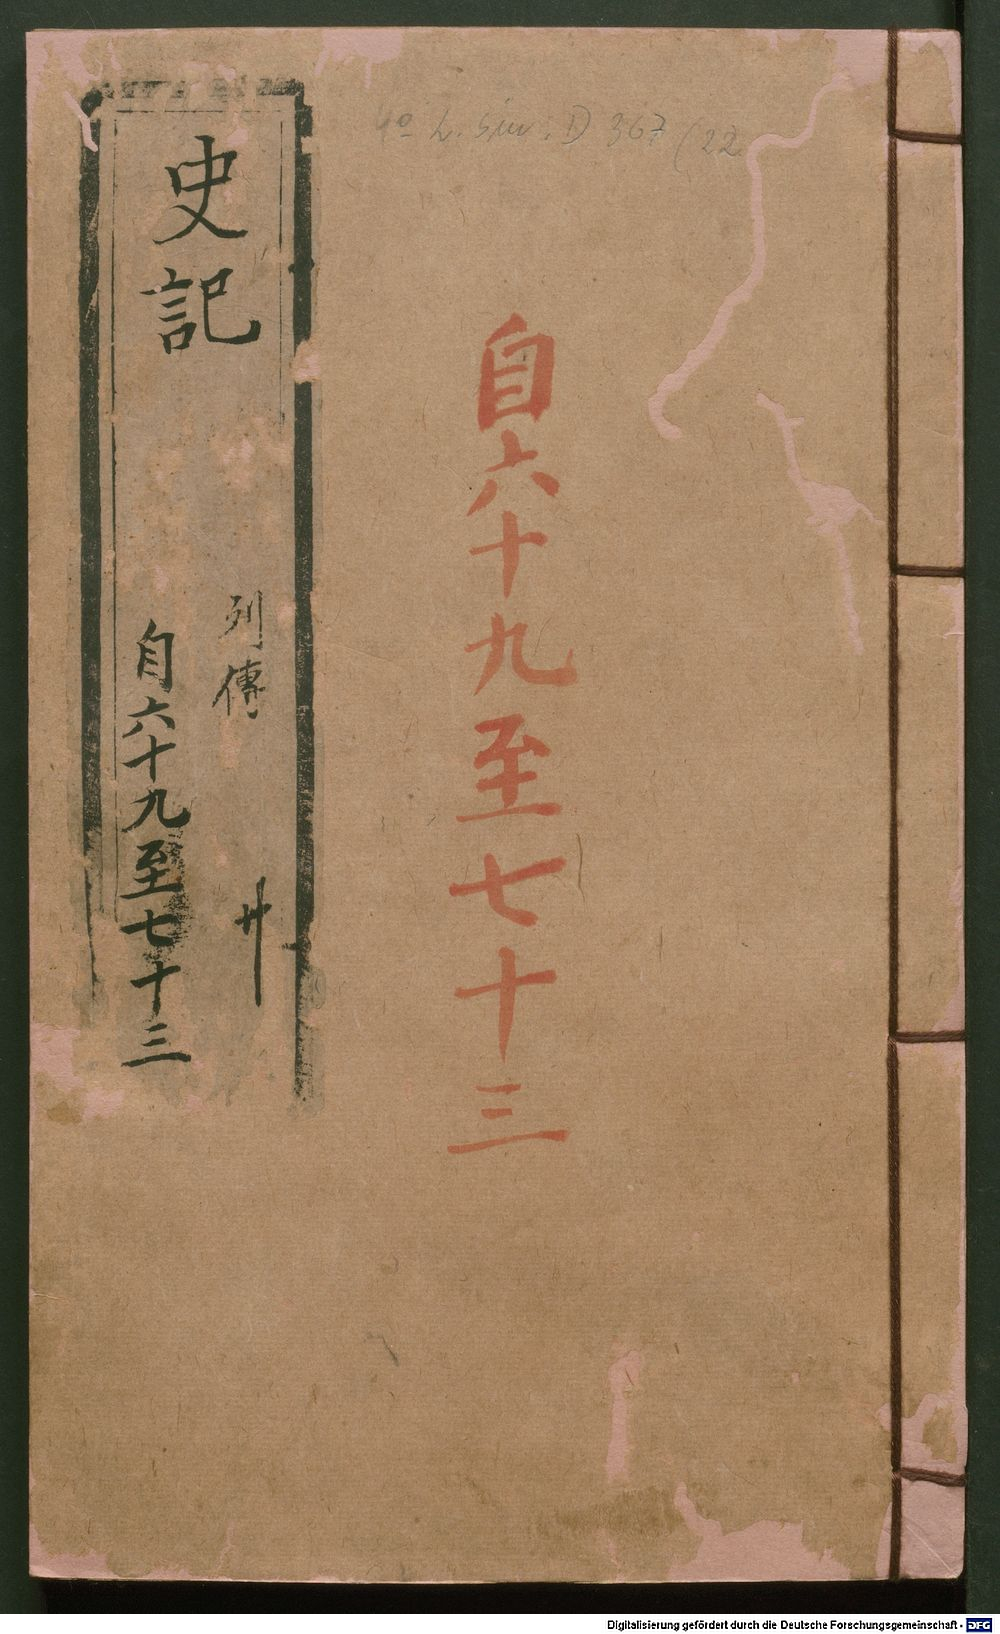 4° L. sin. D 367 (22
自六十九至七十三
史記
列傳
廿
自六十九至七十三
Digitalisierung gefördert durch die Deutsche Forschungsgemeinschaft - DFG